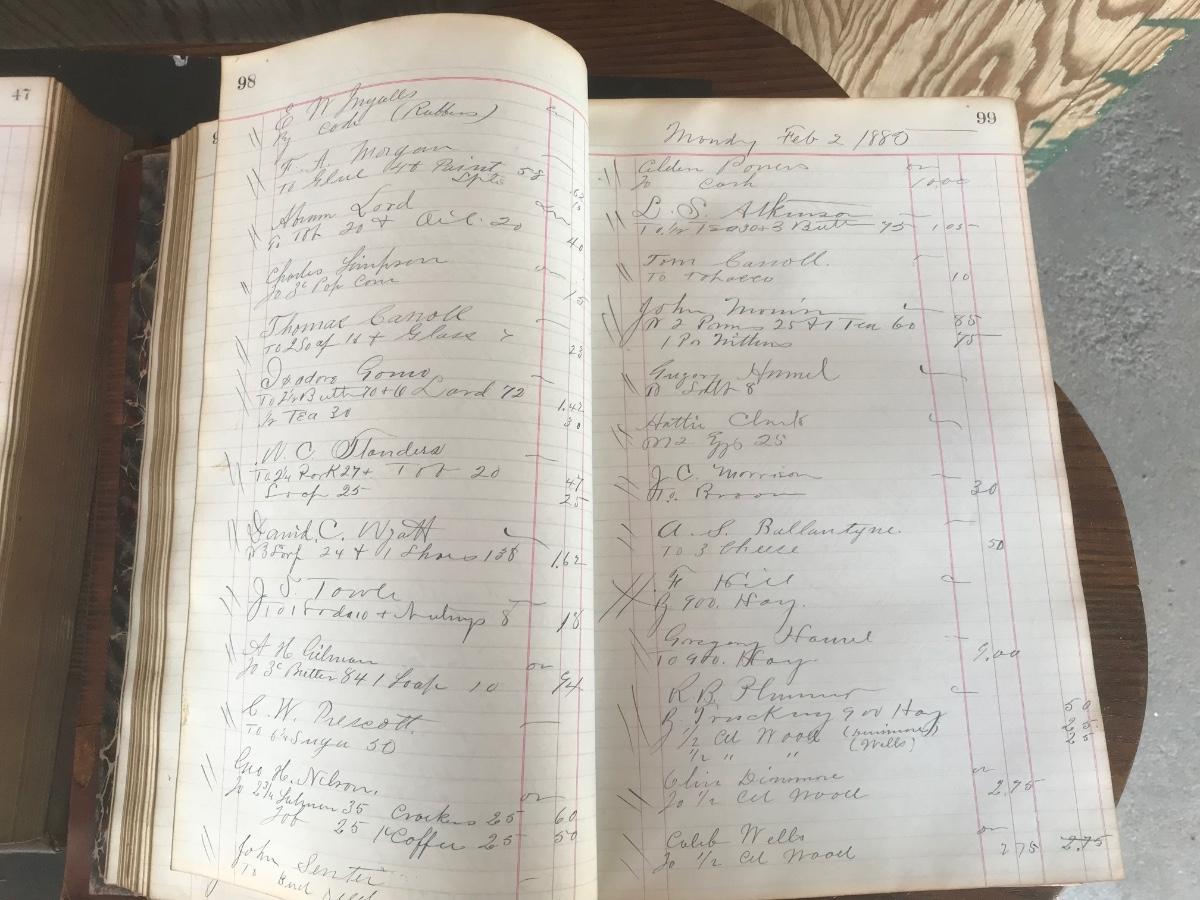 47
98
E W Ingalls
By Cod (Rubbers)
F. A. Morgan
To Glue 40 Paint 58
Abram Lord
To Tob 20 + Oil 20 40
Charles Simpson
To 3c Pop Corn 15
Thomas Carroll
To 2 Soap 16 + Glass 7 23
Isodore Gomo
To 2 1/2 Butt 70 + 6 Lard 72 1.42
1/2 Tea 30 30
W. C. Flanders
To 2 1/4 Pork 27 + Tob 20 47
Soap 25 25
David C. Wyatt
3 Soap 24 + 1 Shoes 138 1.62
J. S. Towle
To 1 Soda 10 + Nutmgs 8 18
A H Gilman
To 3c Butter 84 1 Soap 10 94
C. W. Prescott
To 6 1/4 Suga 50
Geo H. Nelson,
To 2 3/4 Salmon 35 Crackers 25 60
Tob 25 1c Coffee 25 50
John Senter
To
99
Monday Feb 2 1880
Alden Powers
To Cash 10.00
L. S. Atkinson
To 1/2 Tea 30 + 3 Butt 75 1 05
Tom Carroll.
To Tobacco 10
John Morin
2 Pans 25 + 1 Tea 60 85
1 Pr Mittens 75
Gregory Hamel
To Salt 8
Hattie Clark
2 Eggs 25
J. C. Morrison
To Broom 30
A. S. Ballantyne.
To 3 Cheese 50
F Hill
By 900. Hay.
Gregory Hamel
To 900. Hay. 9.00
R. B. Plummer
By Trucking 900 Hay 50
1/2 Cd Wood (Dinsmore) 25
1/2 " " (Wells) 25
Olin Dinsmore
To 1/2 Cd Wood 2.75
Caleb Wells
To 1/2 Cd Wood 2 75 2.75